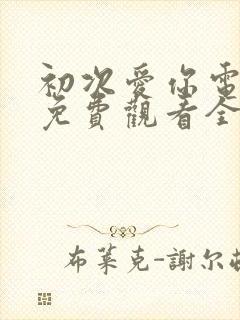 初次愛你電
免費觀看全
布萊克-謝尔